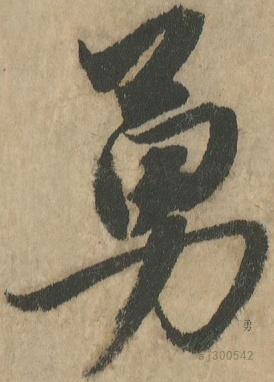 勇
勇
gj300542